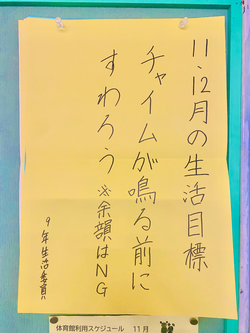 11.12月の生活目標
チャイムが鳴る前に
すわろう ※余韻はNG
9年生活委員
体育館利用スケジュール 11月